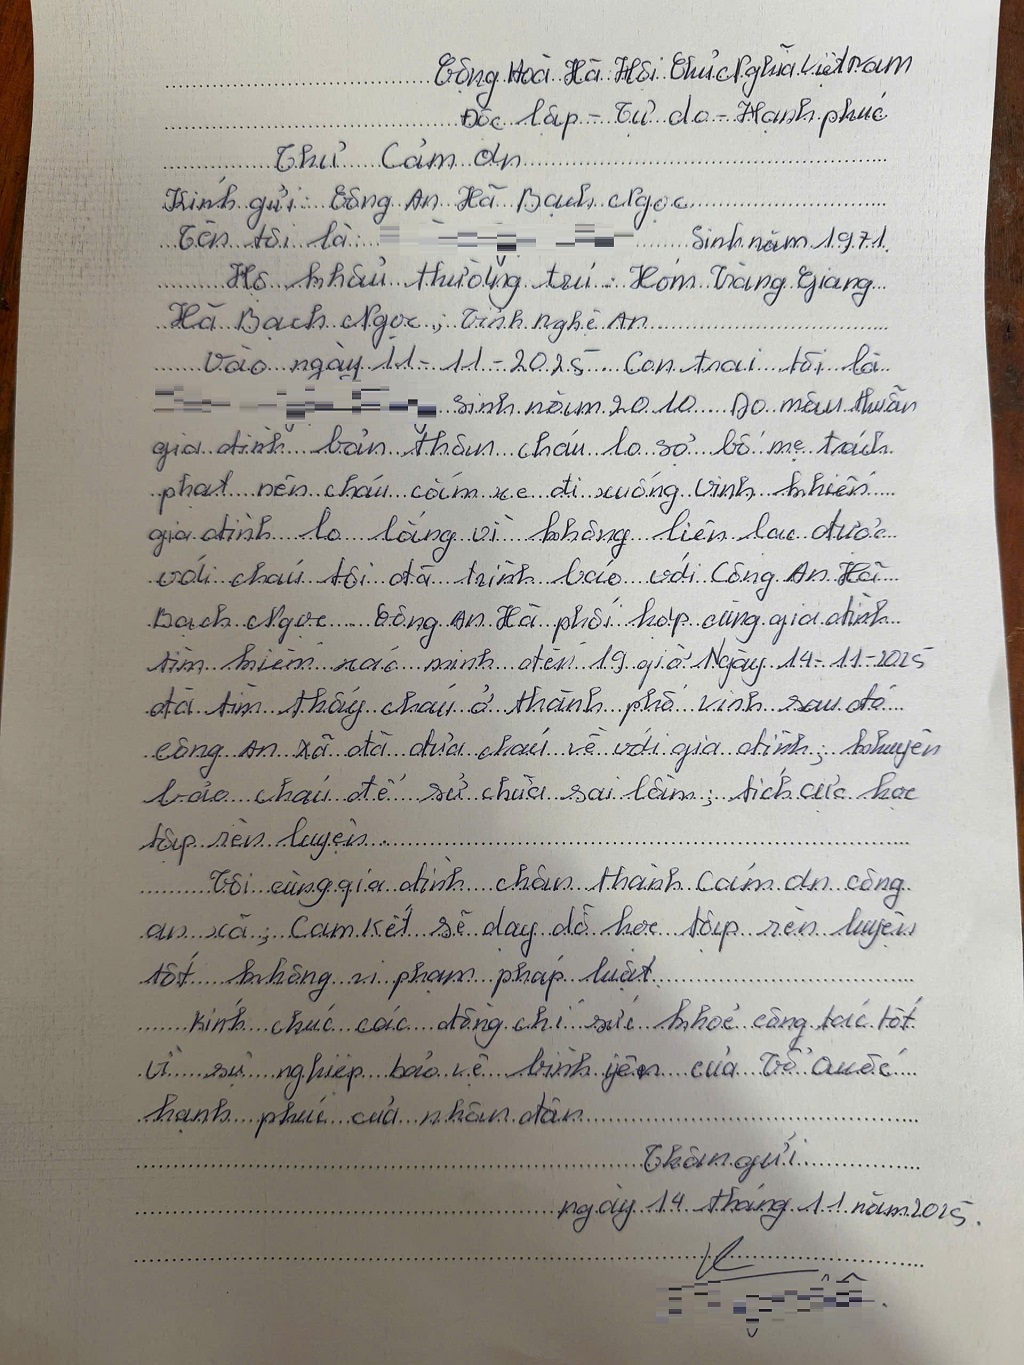 Cộng Hoà Xã Hội Chủ Nghĩa Việt Nam
Độc lập - Tự do - Hạnh phúc
Thư Cảm ơn
Kính gửi: Công An Xã Bạch Ngọc
Tên tôi là: Sinh năm 1971.
Hộ khẩu thường trú: Xóm Tràng Giang
Xã Bạch Ngọc; Tỉnh nghệ An
Vào ngày 11-11-2025 Con trai tôi là
Sinh năm 2010 Do mâu thuẫn
gia đình bản thân cháu lo sợ bố mẹ trách
phạt nên cháu cầm xe đi xuống Vinh khiến
gia đình lo lắng vì không liên lạc được
với cháu tôi đã trình báo với Công An Xã
Bạch Ngọc Công An Xã phối hợp cùng gia đình
tìm kiếm xác minh đến 19 giờ Ngày 14-11-2025
đã tìm thấy cháu ở thành phố vinh sau đó
công An xã đã đưa cháu về với gia đình; khuyên
bảo cháu để sửa chữa sai lầm; tích cực học
tập rèn luyện.
Tôi cùng gia đình chân thành Cảm ơn công
an xã; Cam kết sẽ dạy dỗ học tập rèn luyện
tốt không vi phạm pháp luật
Kính chúc các đồng chí sức khoẻ công tác tốt
vì sự nghiệp bảo vệ bình yên của Tổ Quốc
hạnh phúc của nhân dân
Thân gửi
ngày 14 tháng 11 năm 2025.